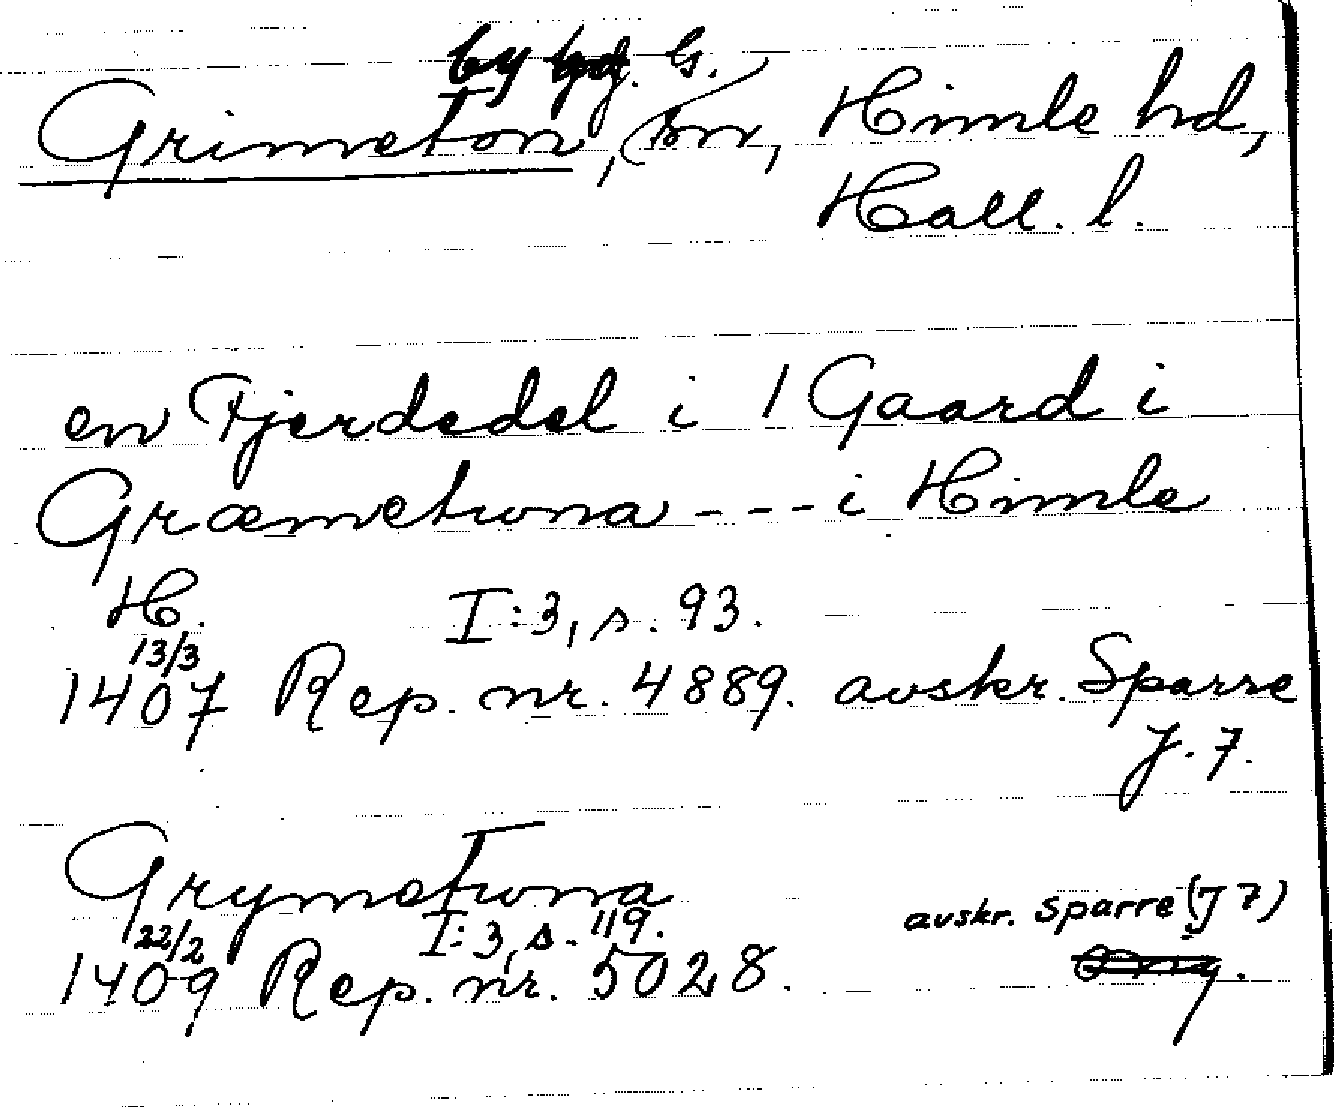 by G.
Grimeton, sn, Himle hd,
Hall. l.
en Fjerdedel i 1 Gaard i
Græmetwna - - - i Himle
H. I:3, s. 93.
13/3
1407 Rep. nr. 4889. avskr. Sparre
J. 7.
Grymetwna
22/2 I:3, s. 119. avskr. Sparre (J 7)
1409 Rep. nr. 5028.